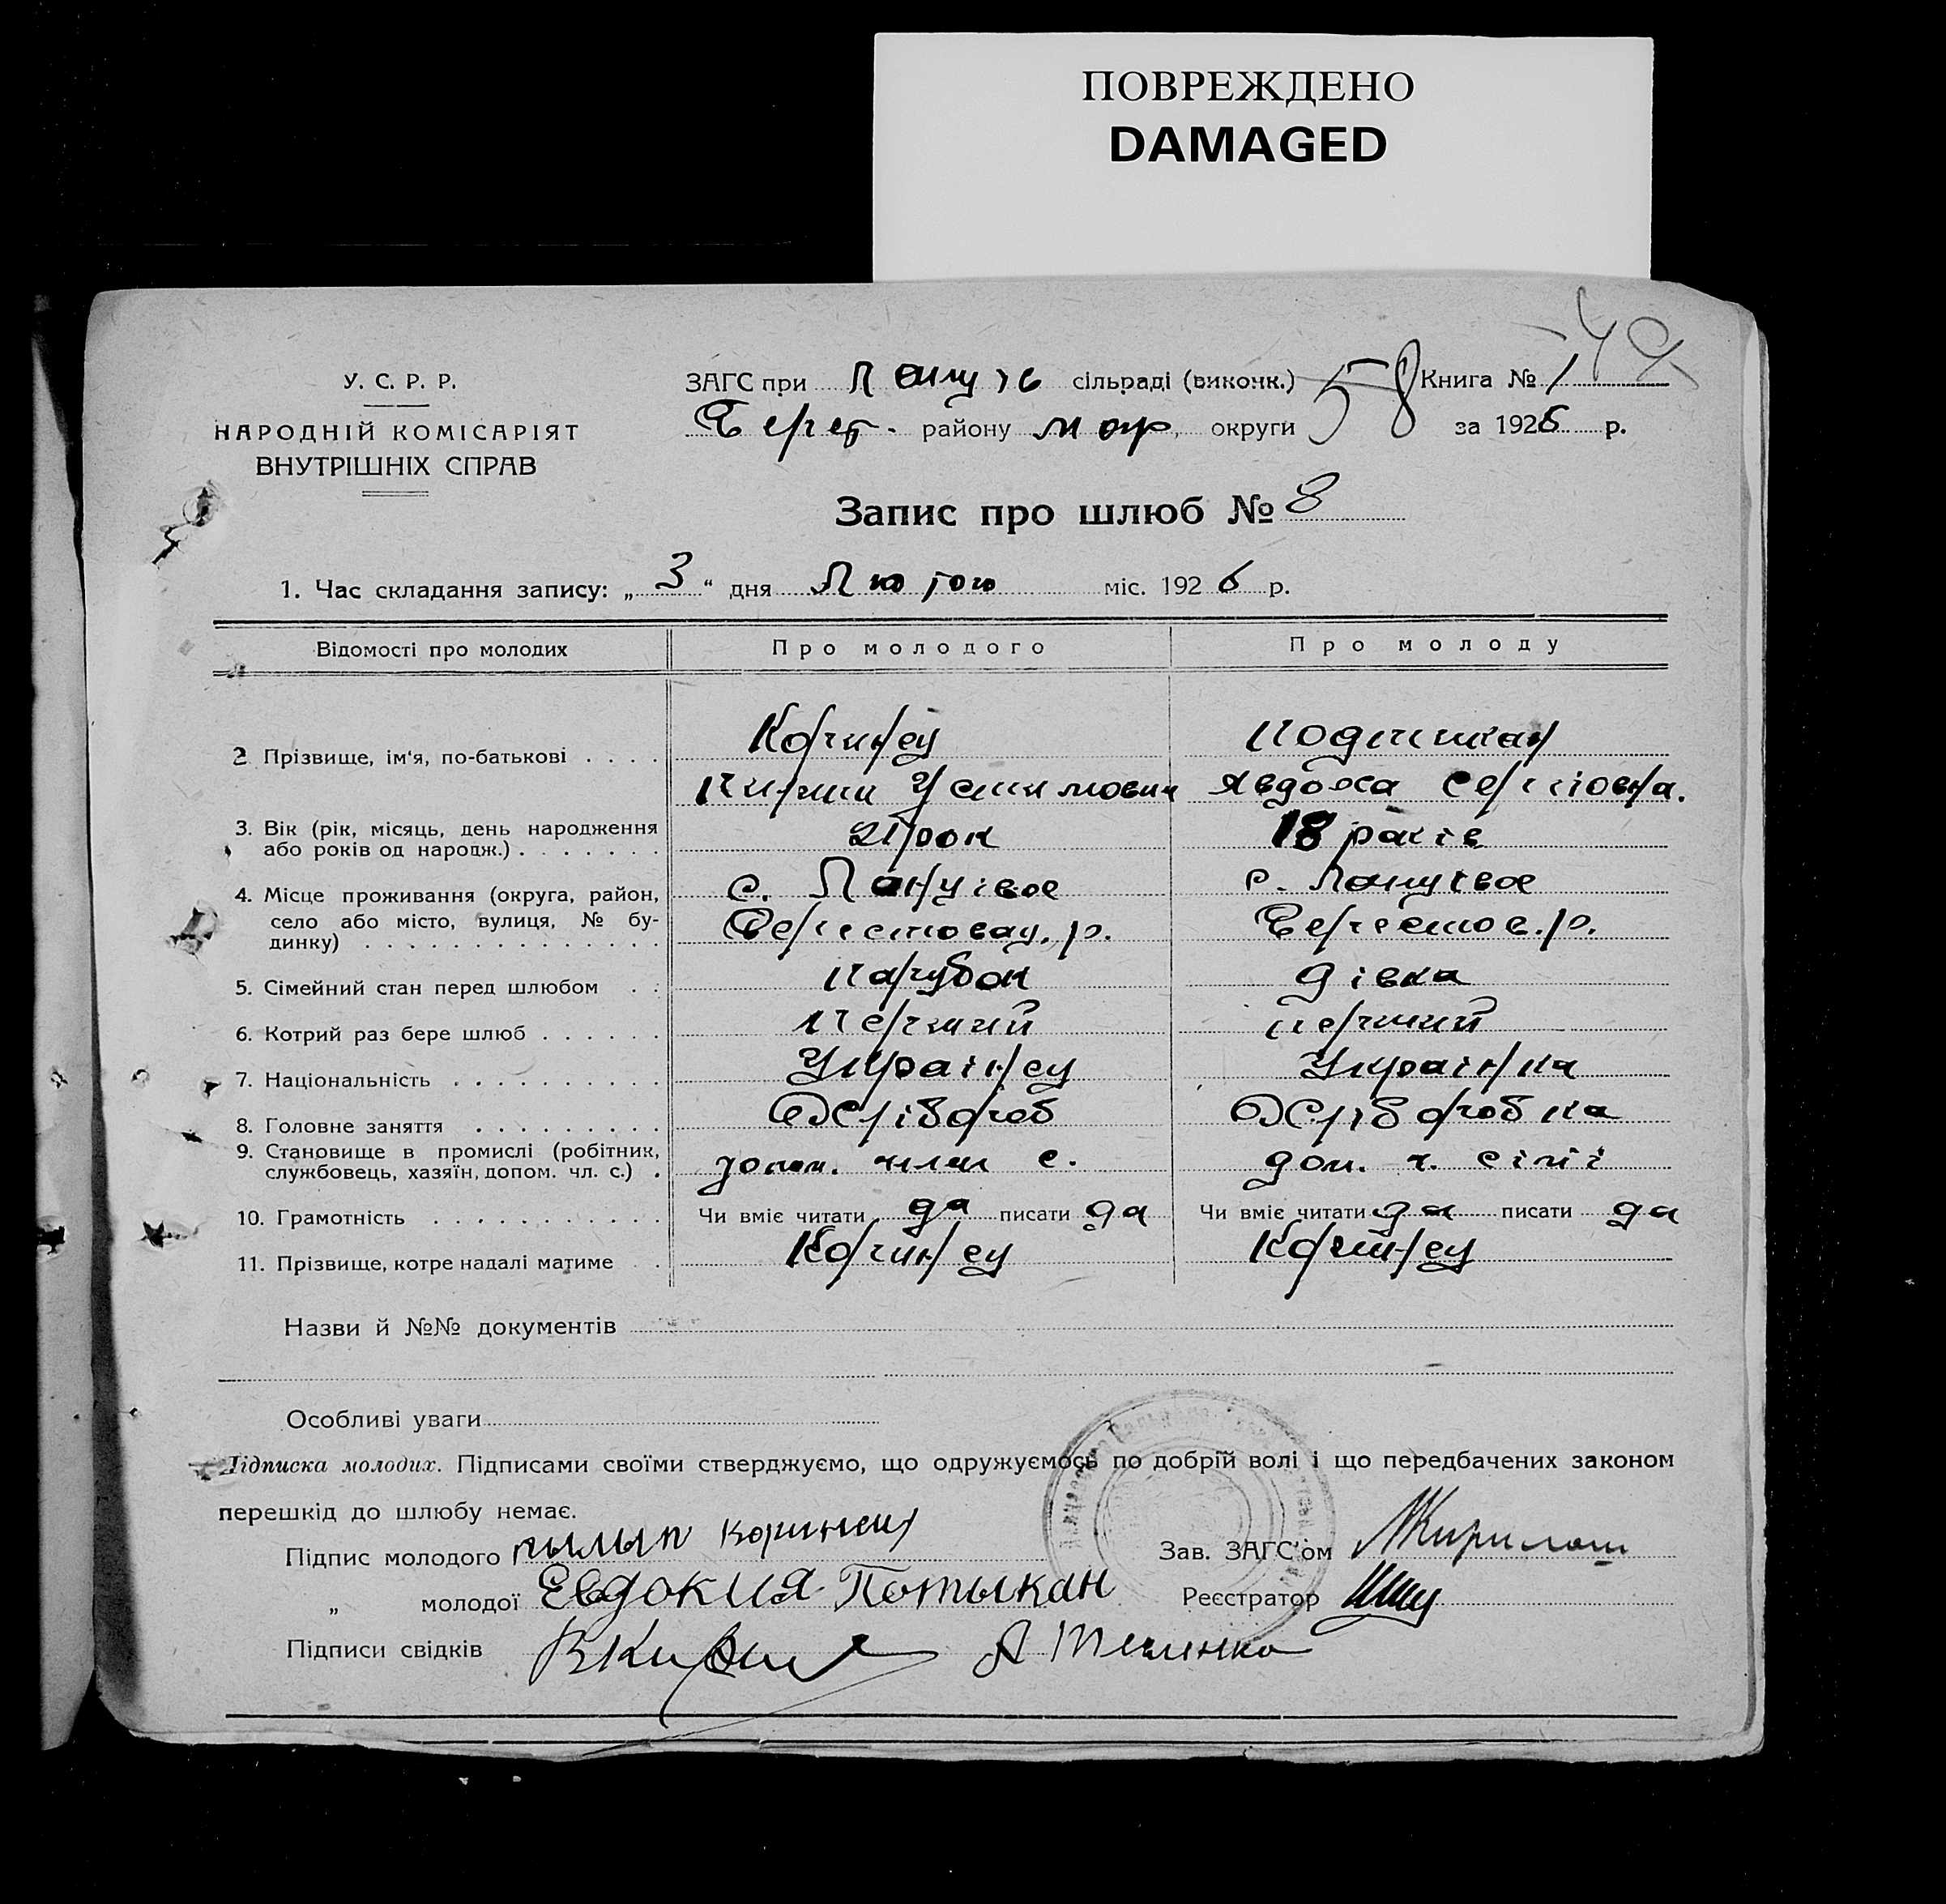 ПОВРЕЖДЕНО
DAMAGED
У. С. Р. Р.
НАРОДНІЙ КОМІСАРІЯТ
ВНУТРІШНІХ СПРАВ
ЗАГС при сільраді (виконк.) 58 Книга № 1
Берест. району округи за 1926 р.
Запис про шлюб № 8
1. Час складання запису: „ 3 “ дня Лютого міс. 1926 р.
Відомості про молодих Про молодого Про молоду
2 Прізвище, ім'я, по-батькові . . . . Коринец
Якимович Явдоха Сергіовна.
3. Вік (рік, місяць, день народження
або років од народж.) . . . . . . . 21 рок 18 років
4. Місце проживання (округа, район,
село або місто, вулиця, № бу-
динку) . . . . . . . . . . . . . . с. Ланцівое с. Ланцівое
Берестовец. р. Берестов. р.
5. Сімейний стан перед шлюбом . . Парубок дівка
6. Котрий раз бере шлюб . . . . . . Перший перший
7. Національність . . . . . . . . . . Украінец Украінка
8. Головне заняття . . . . . . . . . Хлібороб Хліборобка
9. Становище в промислі (робітник,
службовець, хазяїн, допом. чл. с.) . допом. член с. доп. ч. сімії
10. Грамотність . . . . . . . . . . . Чи вміє читати да писати да Чи вміє читати да писати да
11. Прізвище, котре надалі матиме . . Коринец Коринец
Назви й №№ документів
Особливі уваги
Підписка молодих. Підписами своїми стверджуємо, що одружуємось по добрій волі і що передбачених законом
перешкід до шлюбу немає.
Підпис молодого пылып Коринец Зав. ЗАГС'ом
„ молодої Евдокия Потыкан Реєстратор
Підписи свідків